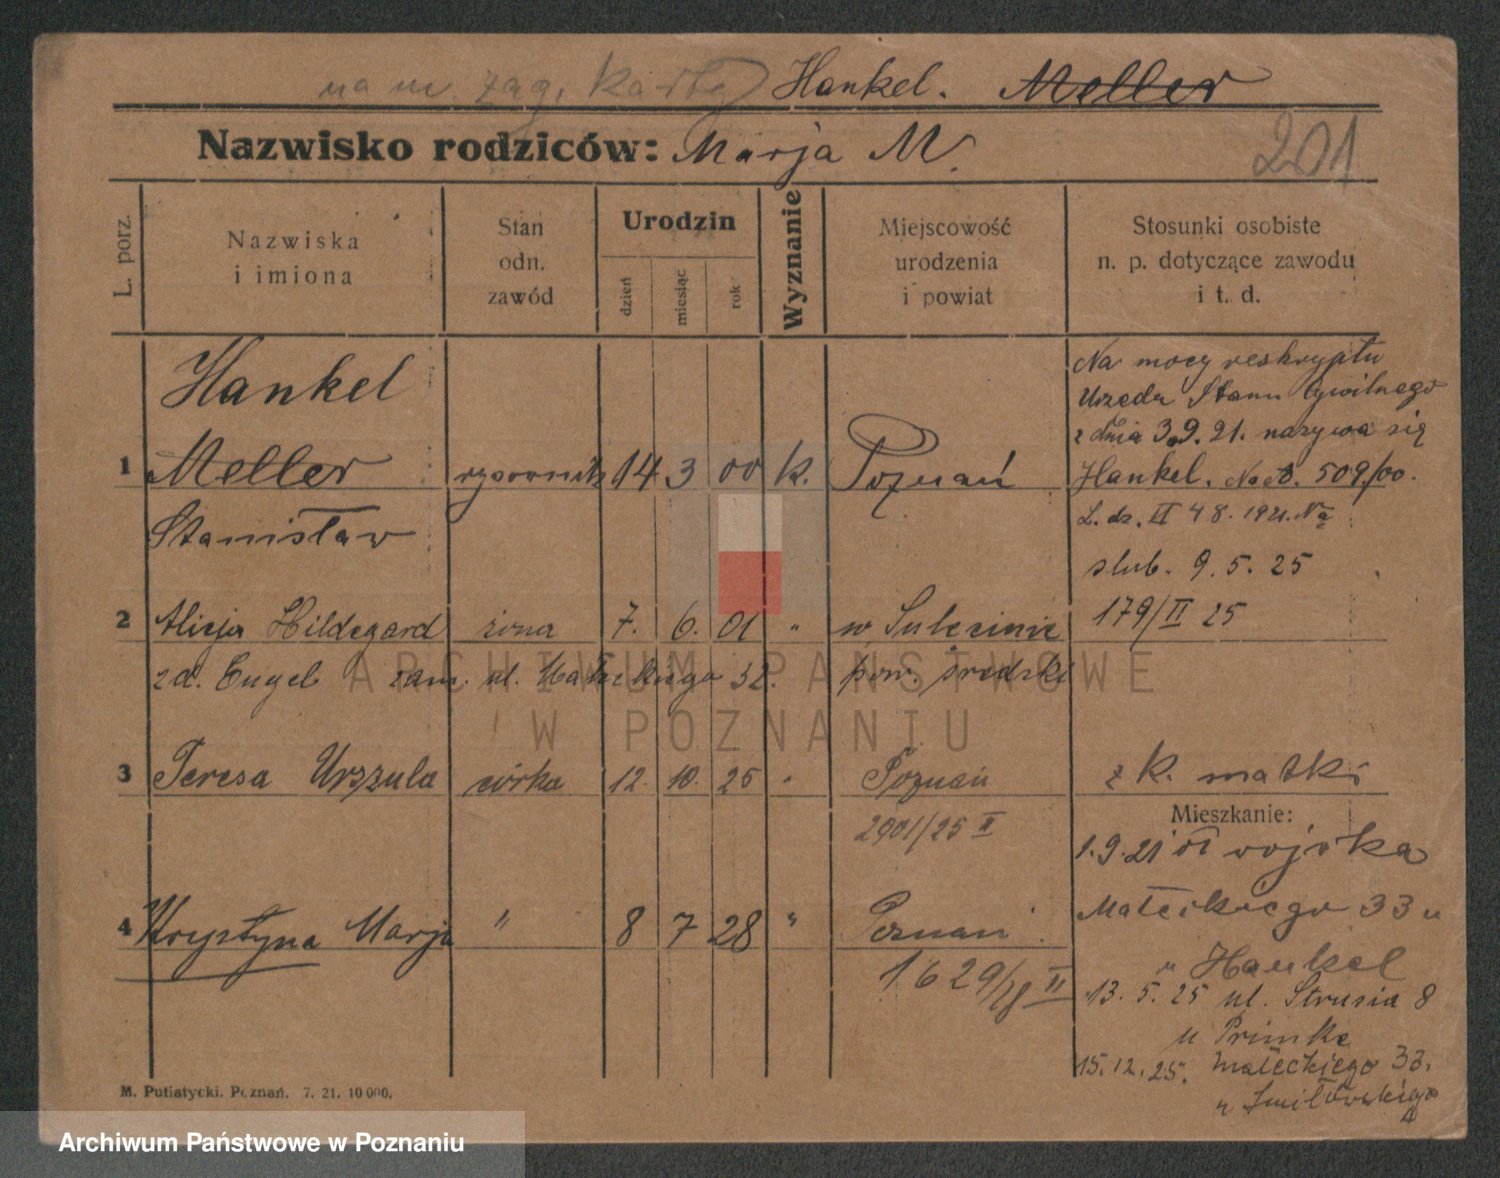 na m. zag. karty Hankel. Meller
Nazwisko rodziców: Marja M.
201
L. porz.
Nazwiska
i imiona
Stan
odn.
zawód
Urodzin
dzień
miesiąc
rok
Wyznanie
Miejscowość
urodzenia
i powiat
Stosunki osobiste
n. p. dotyczące zawodu
i t. d.
Hankel
1 Meller rysownik 14 3 00 k. Poznań
Stanisław
Na mocy reskryptu
Urzędu Stanu Cywilnego
z dnia 3.9.21. nazywa się
Hankel. 509/00.
L. dz. II 48. 1921.
ślub. 9. 5. 25
179/II 25
2 Alicja Hildegard żona 7. 6. 01 " w Sulęcinie
zd. Engel zam. ul. Małeckiego 32. pow. średzki
3 Teresa Urszula córka 12. 10. 25 " Poznań z k. matki
2901/25 II
4 Krystyna Marja " 8 7 28 " Poznań
1629/28 II
Mieszkanie:
1.9.21 z wojska
Małeckiego 33 u
u Hankel
13. 5. 25 ul. Strusia 8
u Primke
15. 12. 25. Małeckiego 33.
u Smiłowskiego
M. Putiatycki. Poznań. 7. 21. 10 000.
ARCHIWUM PAŃSTWOWE
W POZNANIU
Archiwum Państwowe w Poznaniu